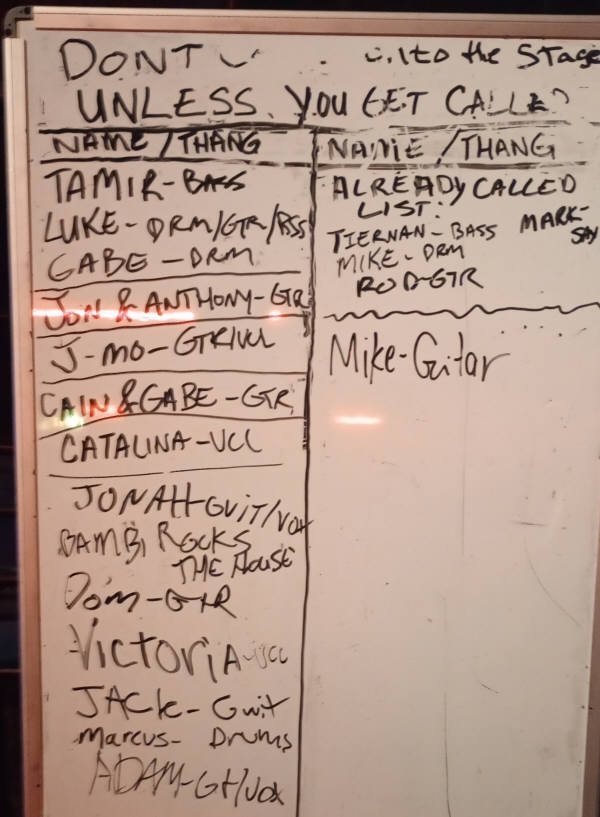 DONT to the STAGE
UNLESS YOU GET CALLED
NAME/THANG
TAMIR-BASS
LUKE-DRM/GTR/BSS
GABE-DRM
JON & ANTHONY-GTR
J-MO-GTR/VCL
CAIN & GABE-GTR
CATALINA-VCL
JONAH-GUIT/VOX
BAMBI ROCKS
THE HOUSE
Dom-GTR
VICTORIA-VCC
JACK-Guit
Marcus-Drums
ADAM-Gt/vox
NAME/THANG
ALREADY CALLED
LIST:
TIERNAN-BASS MARK-
SAY
MIKE-DRM
ROD-GTR
Mike-Guitar